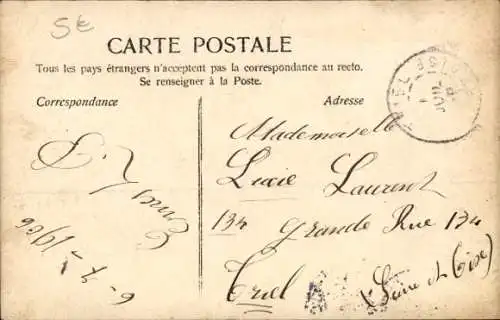 5€
CARTE POSTALE
Tous les pays étrangers n'acceptent pas la correspondance au recto.
Se renseigner à la Poste.
Correspondance
Adresse
Mademoiselle
Lucie Laurent
134 Grande Rue 134
Triel (Seine et Oise)